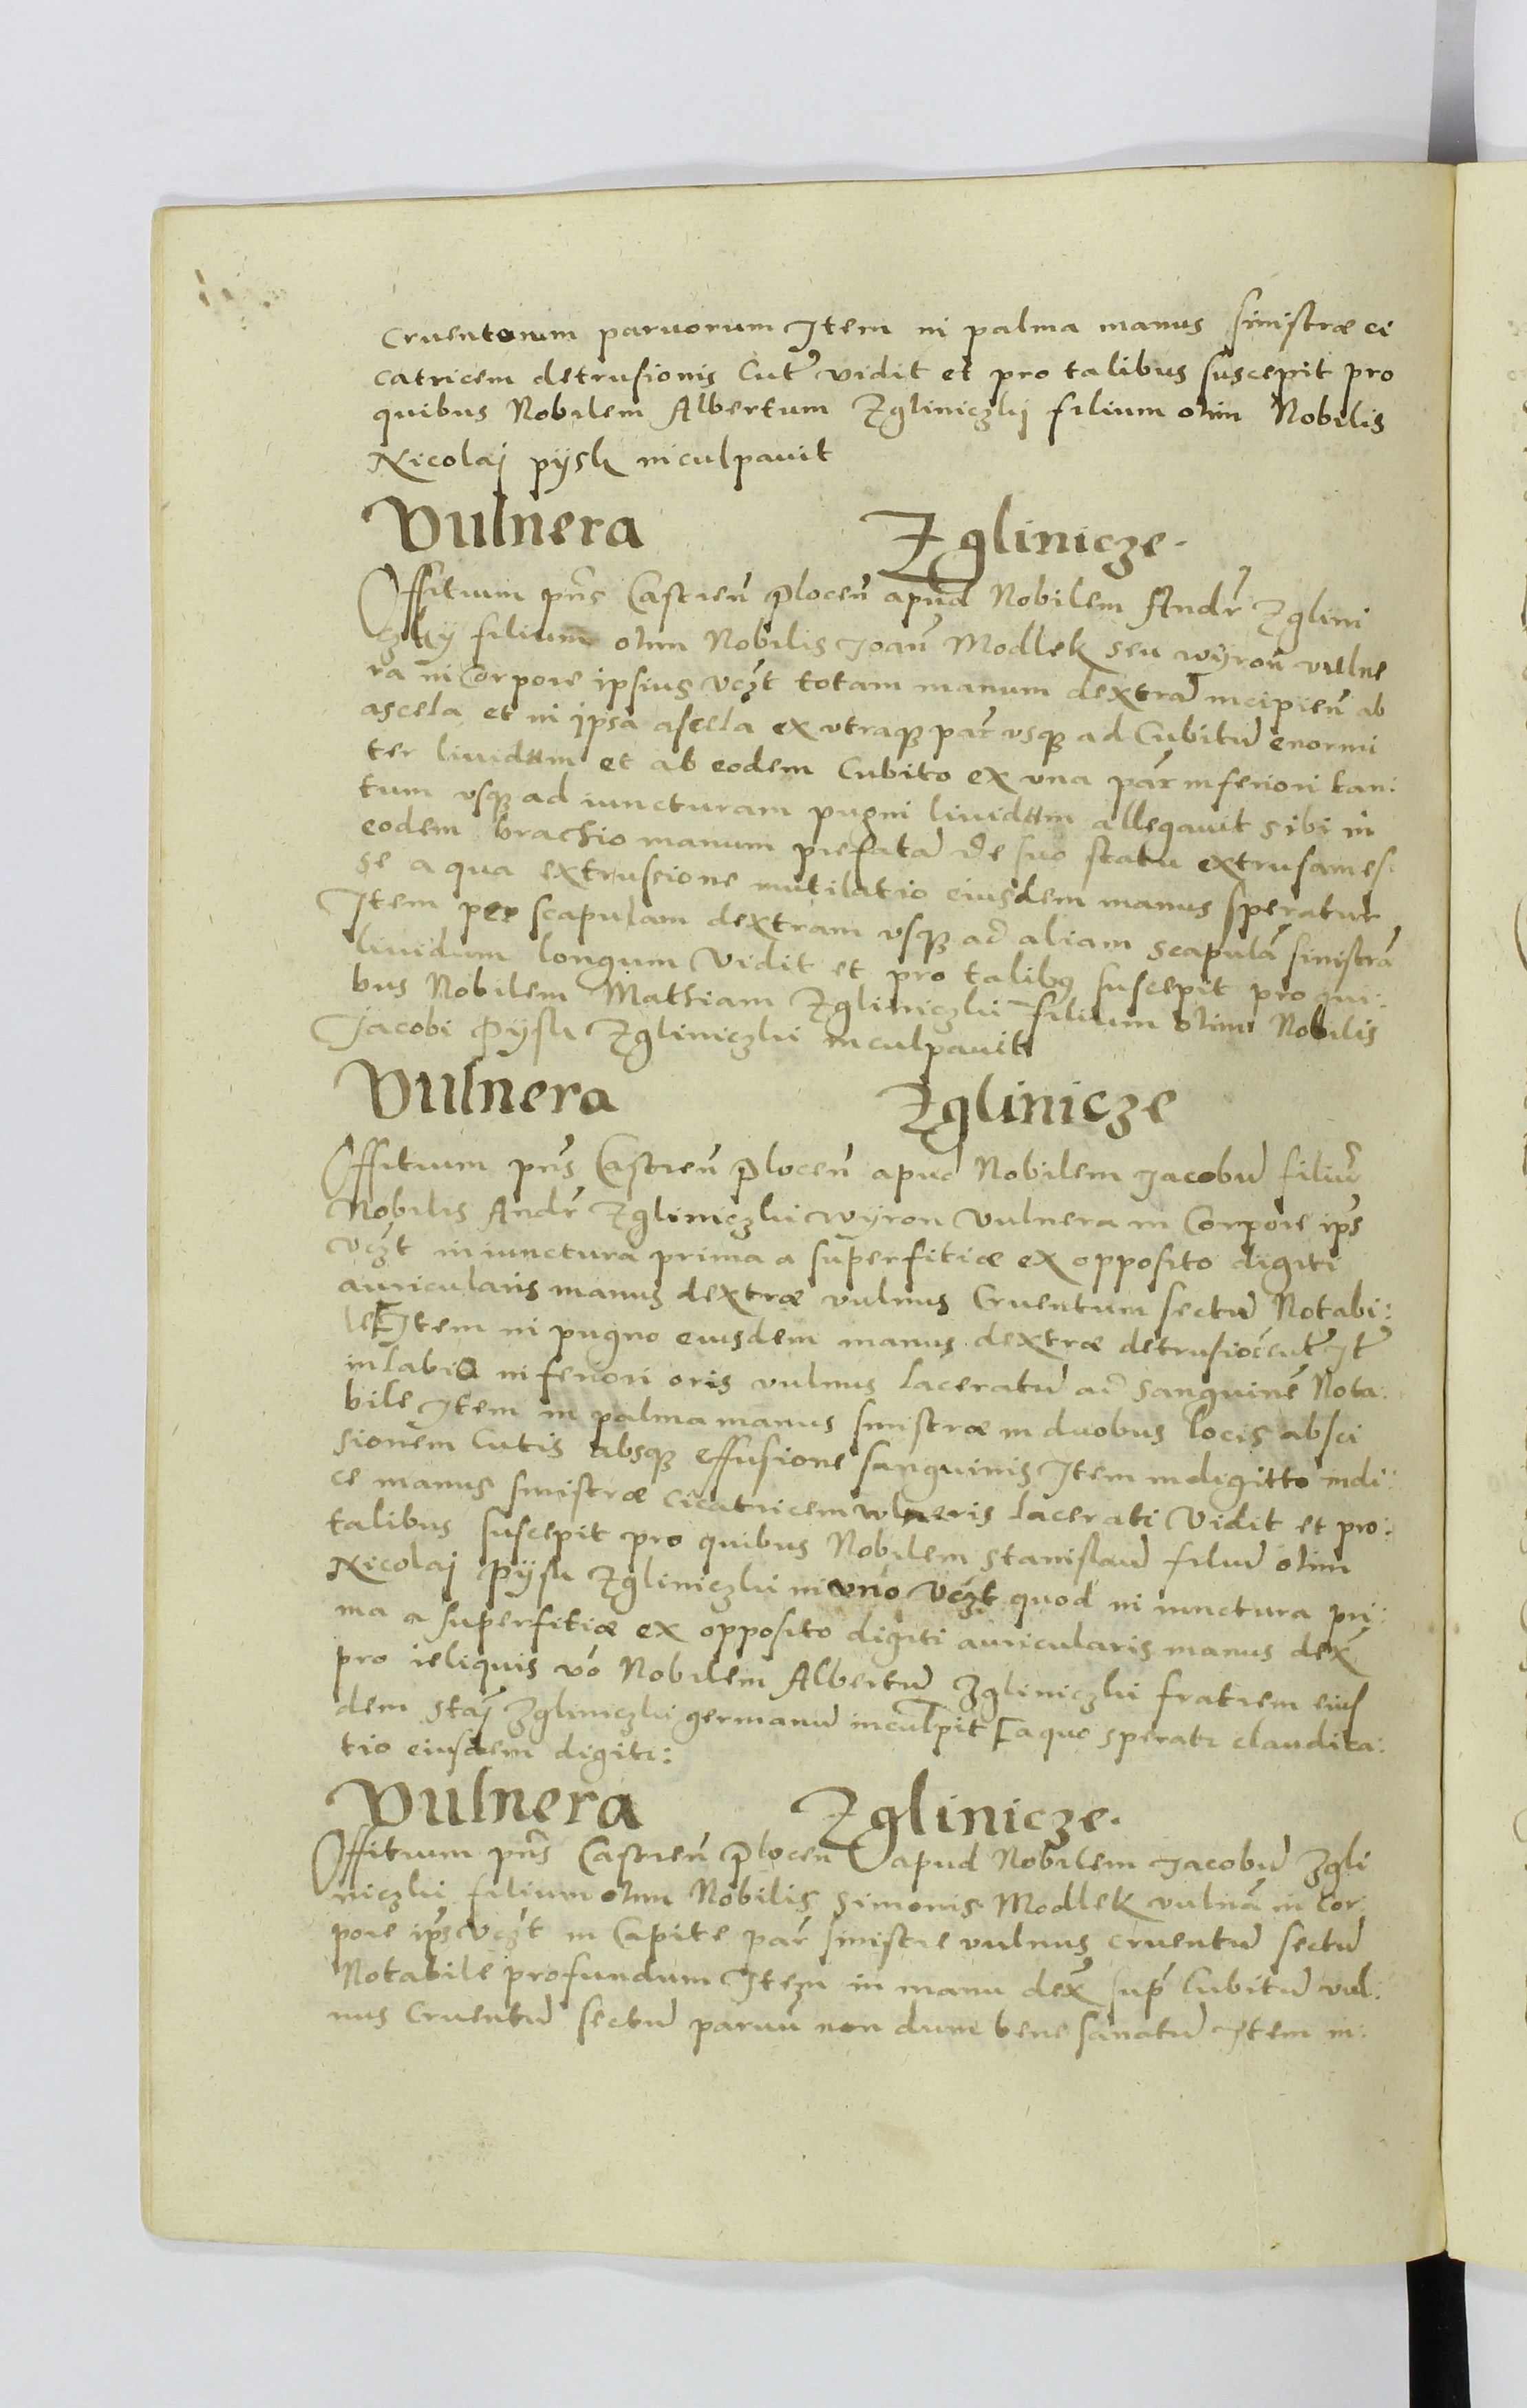 cruentorum paruorum Item in palma manus sinistræ ci
catricem detrusionis Cut vidit et pro talibus suscepit pro
quibus Nobilem Albertum Zgliniczkj filium olim Nobilis
Nicolaj pysk inculpauit
Vulnera Zglinicze.
Offitium pns Castren Plocen apud Nobilem Andr Zglini
czky filium olim Nobilis Joan Modlek seu wyron vulne
ra in Corpore ipsius vczt totam manum dextra incipien ab
ascela et in ipsa ascela ex vtraq part vsq ad Cubitu enormi
ter liuidam et ab eodem Cubito ex vna par inferiori tan:
tum vsq ad iuncturam pugni liuidam allegauit sibi in
eodem brachio manum prefata de suo statu extrusam es.
se a qua extrussione mutilatio eiusdem manus speratur
Item per scapulam dextram vsq ad aliam scapula sinistra
liuidum longum Vidit et pro talibus suscepit pro qui:
bus Nobilem Mathiam Zgliniczki filium olim Nobilis
Jacobi Pysk Zgliniczki inculpauit
Vulnera Zglinicze
Offitium pns Castren Plocen apud Nobilem Jacobu filiu
Nobilis Andr Zgliniczki wyron vulnera in Corpore ips
vczt in iunctura prima a superfitiæ ex opposito digiti
auricularis manus dextræ vulnus Cruentum sectu Notabi:
le Item in pugno eiusdem manus dextræ detrusioe cut It
in labio inferiori oris vulnus laceratu ad sanguine Nota:
bile Item in palma manus sinistræ in duobus locis absci
sionem Cutis absq effusione sanguinis Item in digitto indi:
ce manus sinistræ cicatricem vulneris lacerati Vidit et pro:
talibus suscepit pro quibus Nobilem Stanislau filiu olim
Nicolaj Pysk Zgliniczki in vno vczt quod in iunctura pri:
ma a superfitiæ ex opposito digiti auricularis manus dex
pro reliquis vo Nobilem Albertu Zgliniczki fratrem eius
dem Staj Zgliniczki germanu inculpit [a quo sperat claudica:
tio eiusdem digiti:
Vulnera Zglinicze.
Offitium pns Castren Plocen apud Nobilem Jacobu Zgli
niczki filium olim Nobilis Simonis Modlek vulna in Cor
pore ips vczt in Capite par sinistre vulnus cruentu sectu
Notabile profundum Item in manu dex sup Cubitu vul:
nus Cruentu sectu paruu non dum bene sanatu Item in: